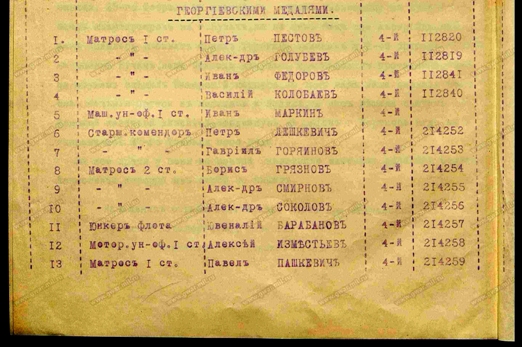 ГЕОРГІЕВСКИМИ МЕДАЛЯМИ.
I. Матросъ I ст. Петръ ПЕСТОВЪ 4-й II2820
2 - " - Алек-дръ ГОЛУБЕВЪ 4-й II2819
3 - " - Иванъ ФЕДОРОВЪ 4-й II2841
4 - " - Василій КОЛОБАЕВЪ 4-й II2840
5 Маш.ун-оф.I ст. Иванъ МАРКИНЪ 4-й
6 Старш.комендоръ Петръ ЛЕШКЕВИЧЪ 4-й 2I4252
7 - " - Гавріилъ ГОРЯИНОВЪ 4-й 2I4253
8 Матросъ 2 ст. Борисъ ГРЯЗНОВЪ 4-й 2I4254
9 - " - Алек-дръ СМИРНОВЪ 4-й 2I4255
10 - " - Алек-дръ СОКОЛОВЪ 4-й 2I4256
II Юнкеръ флота Ювеналій БАРАБАНОВЪ 4-й 2I4257
I2 Мотор.ун-оф.I ст. Алексѣй ИЗМѢСТЬЕВЪ 4-й 2I4258
I3 Матросъ I ст. Павелъ ПАШКЕВИЧЪ 4-й 2I4259